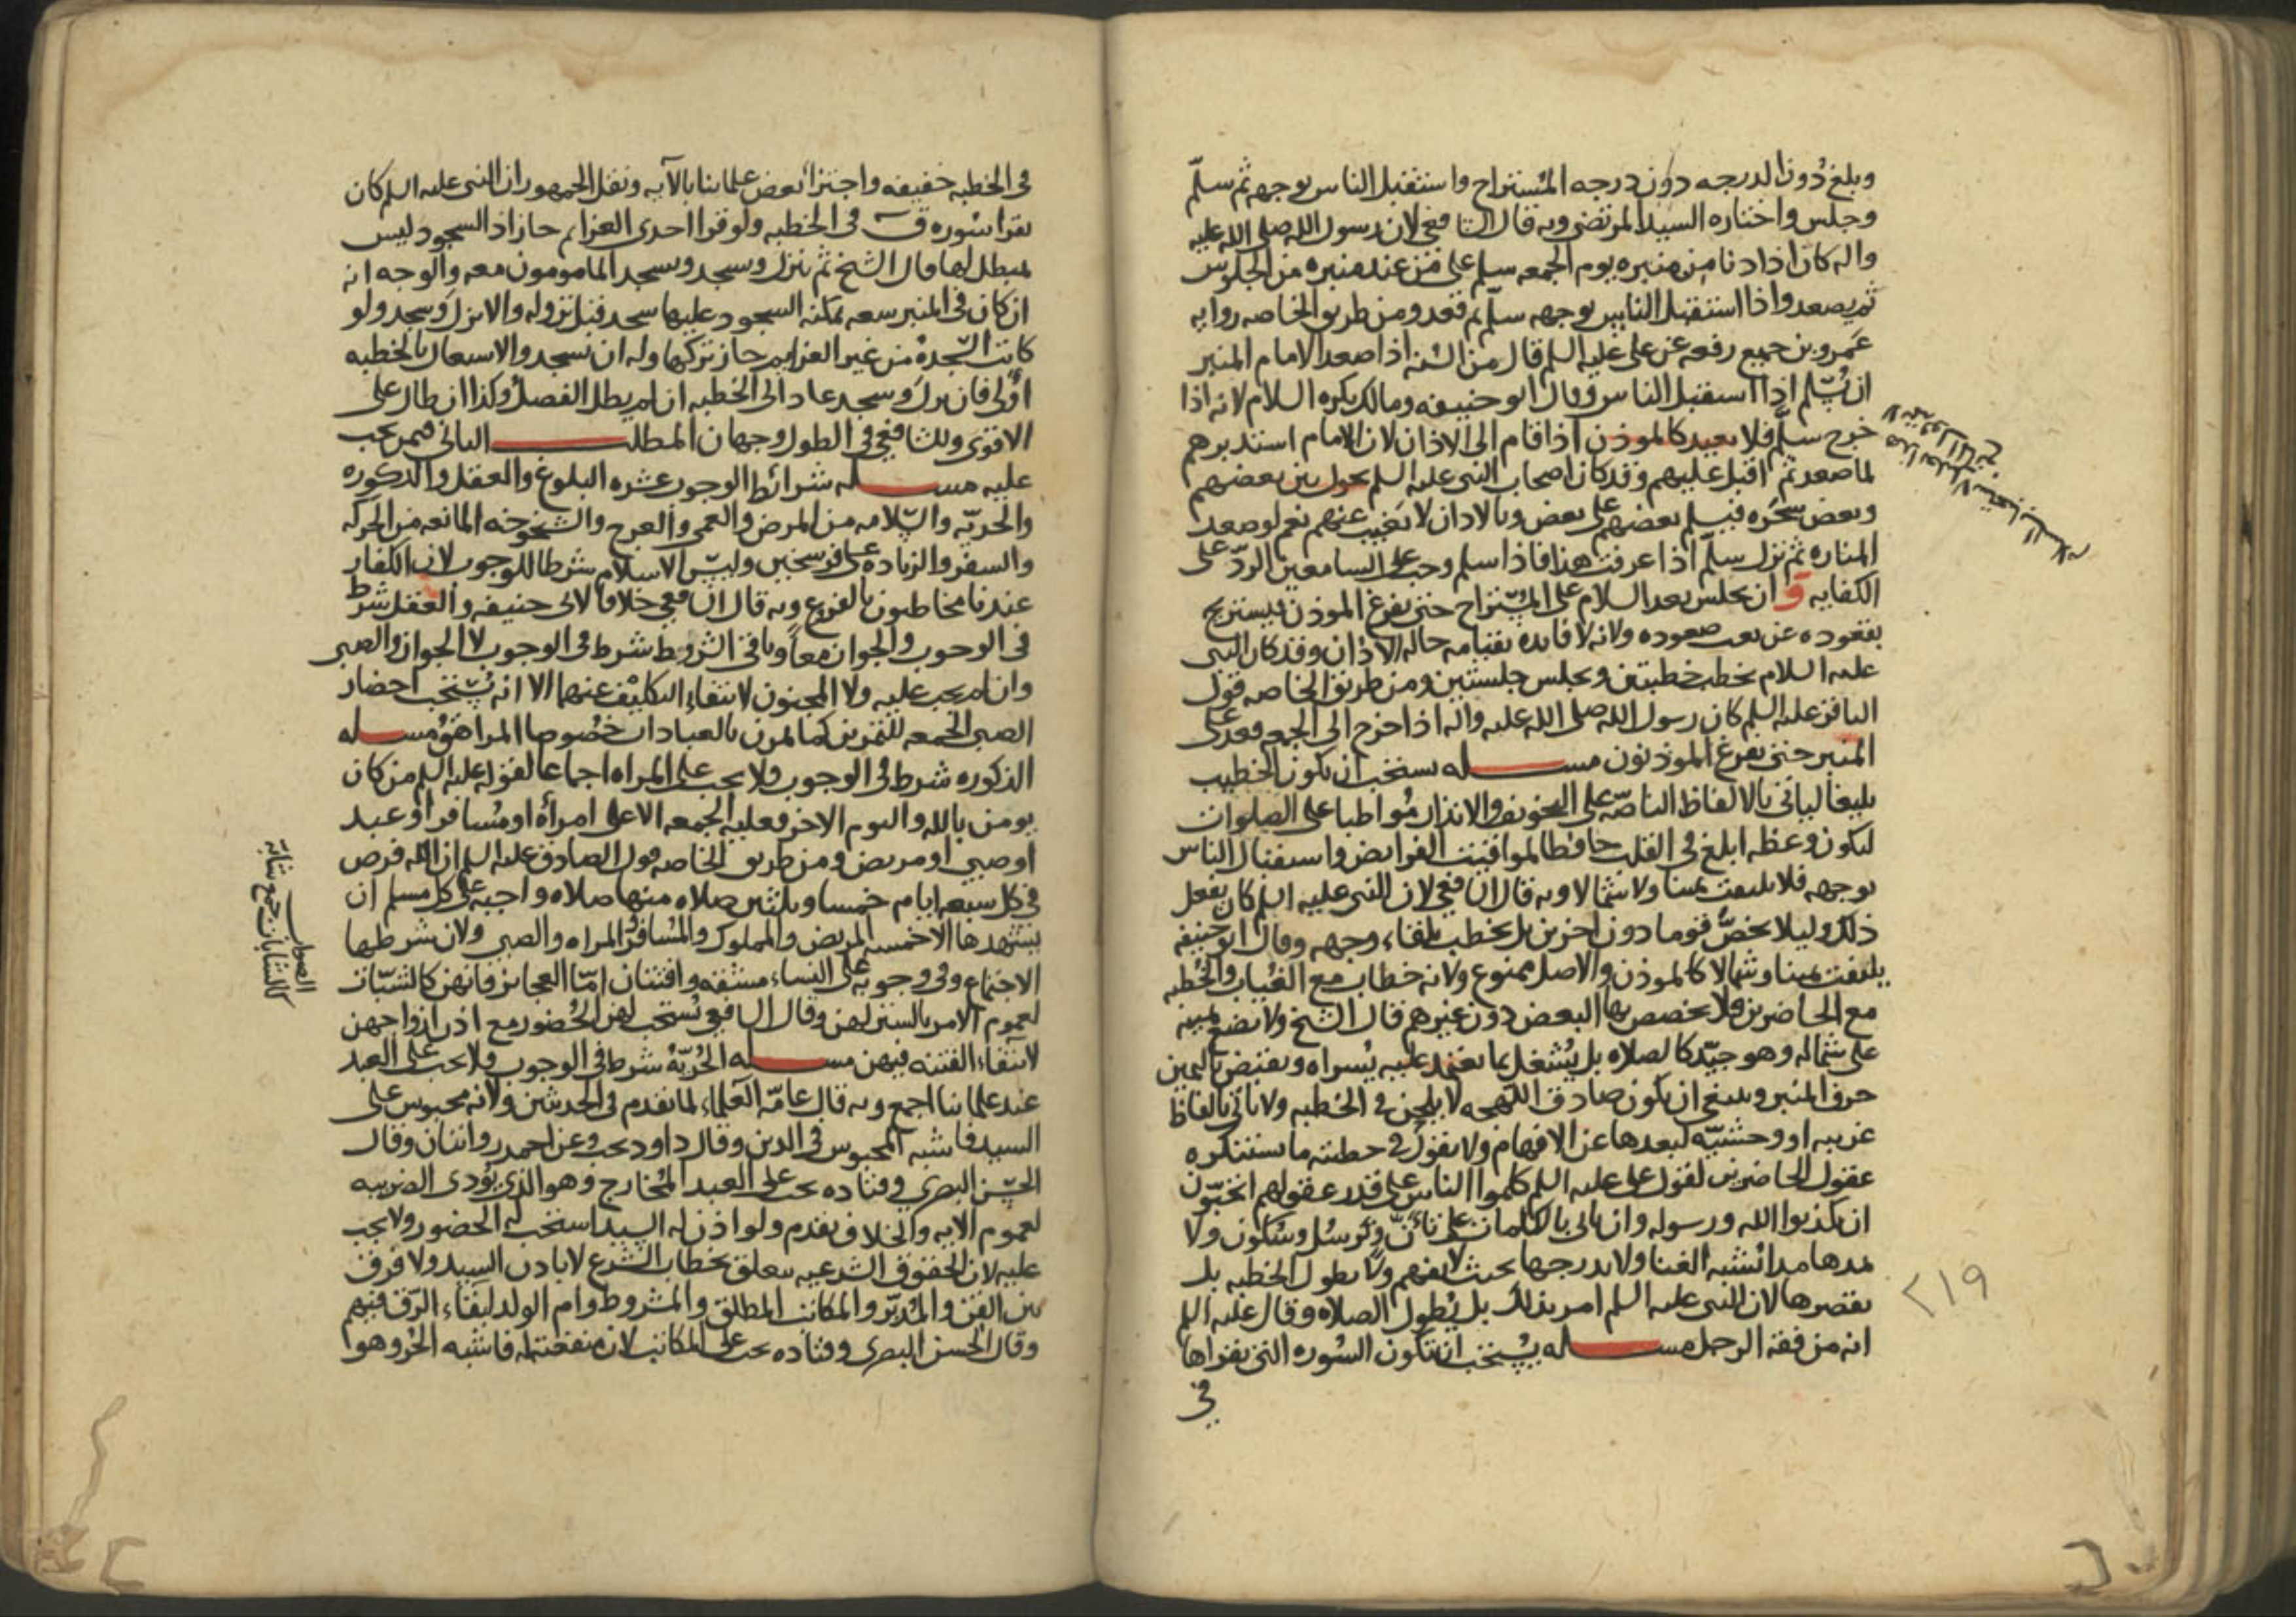 وبلغ دون الدرجه دون درجه المستراح واستقبل الناس بوجهه ثم سلّم
وجلس واختاره السيد المرتضى وبه قال الشافعي لان رسول الله صلى الله عليه
واله كان اذا دنا من منبره يوم الجمعه سلم على من عند منبره من الجلوس
ثم يصعد واذا استقبل الناس بوجهه سلّم ثم قعد ومن طريق الخاصه روايه
عمرو بن جميع رفعه عن على عليه السلم قال من السنه اذا صعد الامام المنبر
ان يسلّم اذا استقبل الناس وقال ابو حنيفه ومالك يكره السلام لانه اذا
خرج سلّم فلا يعيد كالموذن اذا قام الى الاذان لان الامام استدبرهم
لما صعد ثم اقبل عليهم وقد كان اصحاب النبى عليه السلم يحول بين بعضهم
وبعض شجره فيسلم بعضهم على بعض وبالاذان لا يغيب عنهم نعم لو صعد
المناره ثم نزل سلّم اذا عرفت هذا فاذا سلم وجب على السامعين الردّ على
الكفايه و ان يجلس بعد السلام على المستراح حتى يفرغ الموذن فيستريح
بقعوده عن تعب صعوده ولانه لا فايده بقيامه حاله الاذان وقد كان النبى
عليه السلام يخطب خطبتين ويجلس جلستين ومن طريق الخاصه قول
الباقر عليه السلم كان رسول الله صلى الله عليه واله اذا خرج الى الجمعه قعد على
المنبر حتى يفرغ الموذنون مسله يستحب ان يكون الخطيب
بليغا لياتى بالالفاظ الناصّه على التخويف والانذار مواظبا على الصلوات
ليكون وعظه ابلغ فى القلب حافظا لمواقيت الفرايض واستقبال الناس
بوجهه فلا يلتفت يمينا ولا شمالا وبه قال الشافعي لان النبى عليه السلم كان يفعل
ذلك وليلا يخصّ قوما دون اخرين بل يخطب تلقاء وجهه وقال ابو حنيفه
يلتفت يمينا وشمالا كالموذن والاصل ممنوع ولانه خطاب مع الغياب والخطبه
مع الحاضرين فلا يخصص بها البعض دون غيرهم قال الشيخ ولا يضع يمينه
على شماله وهو جيّد كالصلاه بل يشغل بما يعتمد عليه يسراه ويقبض باليمين
حرف المنبر وينبغى ان يكون صادق اللهجه لا يلحن فى الخطبه ولا ياتى بالفاظ
غريبه او وحشيّه لبعدها عن الافهام ولا يقول فى خطبته ما تستنكره
عقول الحاضرين لقول على عليه السلم كلموا الناس على قدر عقولهم اتحبّون
ان يكذبوا الله ورسوله وان ياتى بالكلمات على تأنّ وترسل وسكون ولا
يمدها مدا تشبه الغنا ولا يدرجها بحيث لا يفهم ولا يطول الخطبه بل
يقصرها لان النبى عليه السلم امر بذلك بل يطول الصلاه وقال عليه السلم
انه من فقه الرجل مسله يستحب ان تكون السوره التى يقراها
فى
٢١٩
فى الخطبه خفيفه واجتزا بعض علمائنا بالآيه ونقل الجمهور ان النبى عليه السلم كان
يقرا سوره ق فى الخطبه ولو قرا احدى العزايم جاز اذ السجود ليس
مبطل لها قال الشيخ ثم ينزل ويسجد ويسجد المامومون معه والوجه انه
ان كان فى المنبر سعه يمكنه السجود عليها سجد قبل نزوله والا نزل وسجد ولو
كانت السجده من غير العزايم جاز تركها وله ان يسجد والاشتغال بالخطبه
اولى فان نزل وسجد عاد الى الخطبه ان لم يطل الفصل وكذا ان طال على
الاقوى وللشافعي فى الطول وجهان المطلب الثانى فيمن تجب
عليه مسله شرائط الوجوب عشره البلوغ والعقل والذكوره
والحريّه والسّلامه من المرض والعمى والعرج والشيخوخه المانعه من الحركه
والسفر والزياده على فرسخين وليس الاسلام شرطا للوجوب لان الكفار
عندنا مخاطبون بالفروع وبه قال الشافعي خلافا لابى حنيفه والعقل شرط
فى الوجوب والجواز معاً وباقى الشروط شرط فى الوجوب لا الجواز والصبى
وان لم يجب عليه ولا المجنون لانتفاء التكليف عنهما الا انه يستحب احضار
الصبى الجمعه للتمرين كما يمرن بالعبادات خصوصا المراهق مسله
الذكوره شرط فى الوجوب فلا يجب على المراه اجماعا لقوله عليه السلم من كان
يومن بالله واليوم الاخر فعليه الجمعه الا على امرأه او مسافر او عبد
او صبى او مريض ومن طريق الخاصه قول الصادق عليه السلم ان الله فرض
فى كل سبعه ايام خمسا وثلثين صلاه منها صلاه واجبه على كل مسلم ان
يشهدها الا خمسه المريض والمملوك والمسافر والمراه والصبى ولان شرطها
الاجتماع وفى وجوبه على النساء مشقه وافتتان امّا العجايز فانهن كالشبّات
لعموم الامر بالستر لهن وقال الشافعي تستحب لهن الحضور مع اذن ازواجهن
لانتفاء الفتنه فيهن مسله الحُرّيّه شرط فى الوجوب فلا يجب على العبد
عند علمائنا اجمع وبه قال عامّه العلماء لما تقدم فى الحديثين ولانه محبوس على
السيد فاشبه المحبوس فى الدين وقال داود يجب وعن احمد روايتان وقال
الحسن البصرى وقتاده يجب على العبد المخارج وهو الذى يؤدى الضريبه
لعموم الآيه والخلاف تقدم ولو اذن له السيد استحب له الحضور ولا يجب
عليه لان الحقوق الشرعيه تتعلق بخطاب الشرع لا باذن السيد ولا فرق
بين القن والمدبّر والمكاتب المطلق والمشروط وام الولد لبقاء الرّق فيهم
وقال الحسن البصرى وقتاده يجب على المكاتب لان منفعته له فاشبه الحر وهو
الصواب
كالشابات جمع شابة